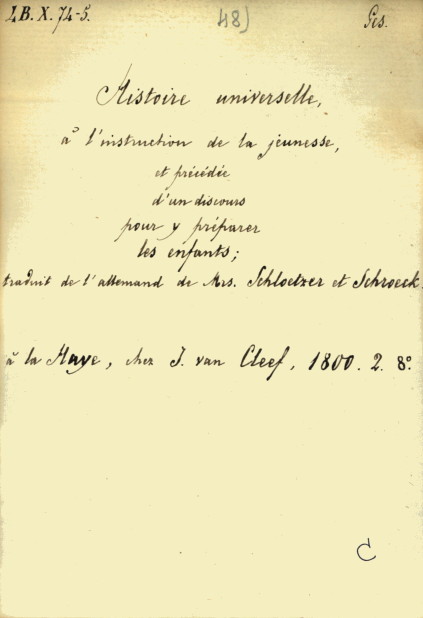 LB. X. 74-5. 48) Ges.
Histoire universelle,
à l'instruction de la jeunesse,
et précédée
d'un discours
pour y préparer
les enfants;
traduit de l'allemand de Mrs. Schloetzer et Schroeck.
à la Haye, chez J. van Cleef, 1800. 2. 8º.
C